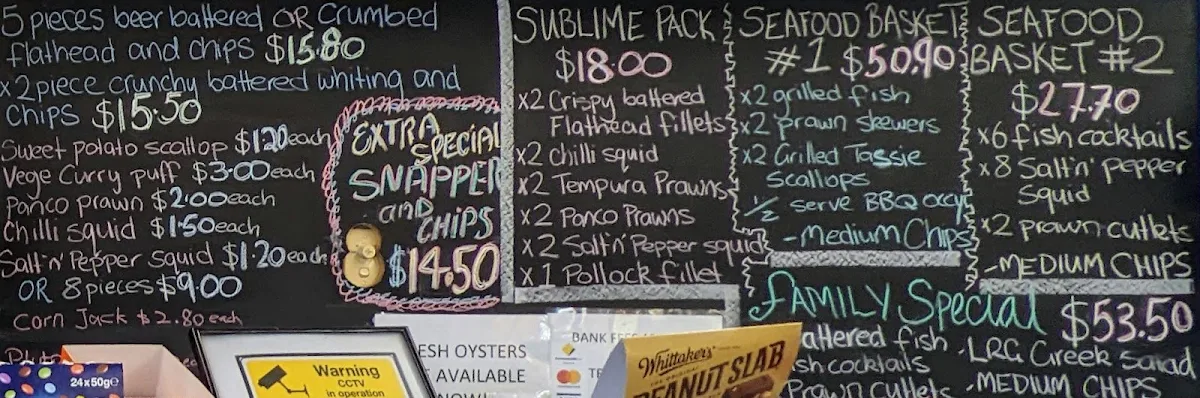 5 pieces beer battered OR Crumbed
flathead and chips $15.80
x2piece crunchy battered whiting and
chips $15.50
Sweet potato scallop $1.20each
Vege Curry puff $3.00each
Panco prawn $2.00each
Chilli squid $1.50each
Salt'n' Pepper squid $1.20each
OR 8pieces $9.00
Corn Jack $2.80 each
EXTRA
SPECIAL
SNAPPER
and
CHIPS
$14.50
SUBLIME PACK
$18.00
x2 Crispy battered
Flathead fillets
x2 chilli squid
x2 Tempura Prawns
x2 Panco Prawns
x2 Salt'n' Pepper squid
x1 Pollock fillet
SEAFOOD BASKET
#1 $50.90
x2 grilled fish
x2 prawn skewers
x2 Grilled Tassie
scallops
½ serve BBQ
- Medium Chips
SEAFOOD
BASKET #2
$27.70
x6 fish cocktails
x8 Salt'n' pepper
Squid
x2 prawn cutlets
-MEDIUM CHIPS
FAMILY Special $53.50
attered fish
sh cocktails
Prawn Cutlets
-LRG Greek Salad
-MEDIUM CHIPS
24x50g e
Warning
CCTV
in operation
ESH OYSTERS
AVAILABLE
NOW!
BANK
Whittaker's
PEANUT SLAB